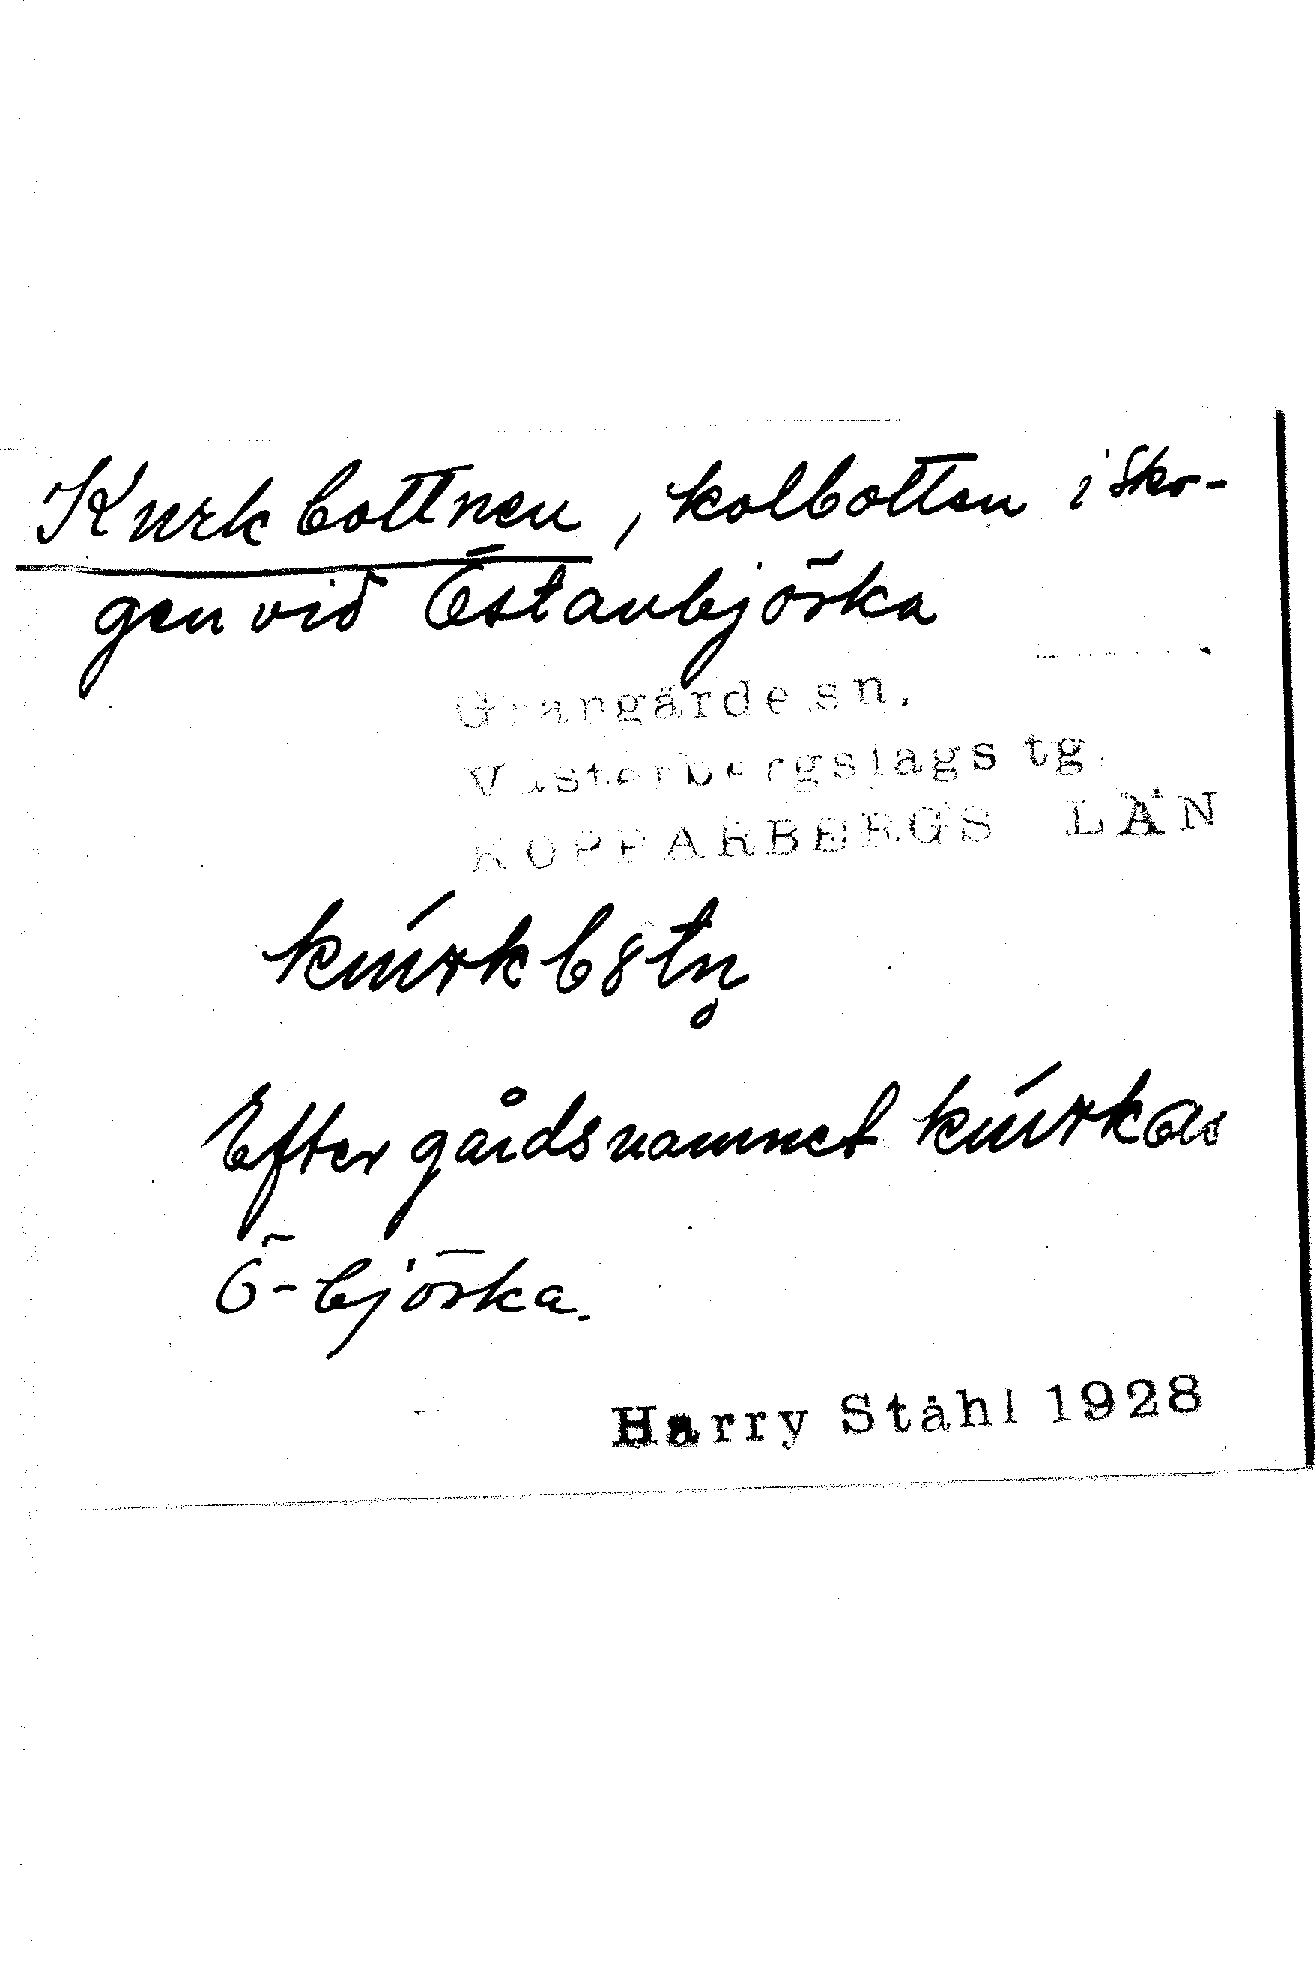 Knrkbottnen, kolbotten i sko-
gen vid Östanbjörka
Grangärde sn.
Västerbergslags tg.
KOPPARBERGS LÄN
Efter gårdsnamnet
Ö-björka.
Harry Ståhl 1928